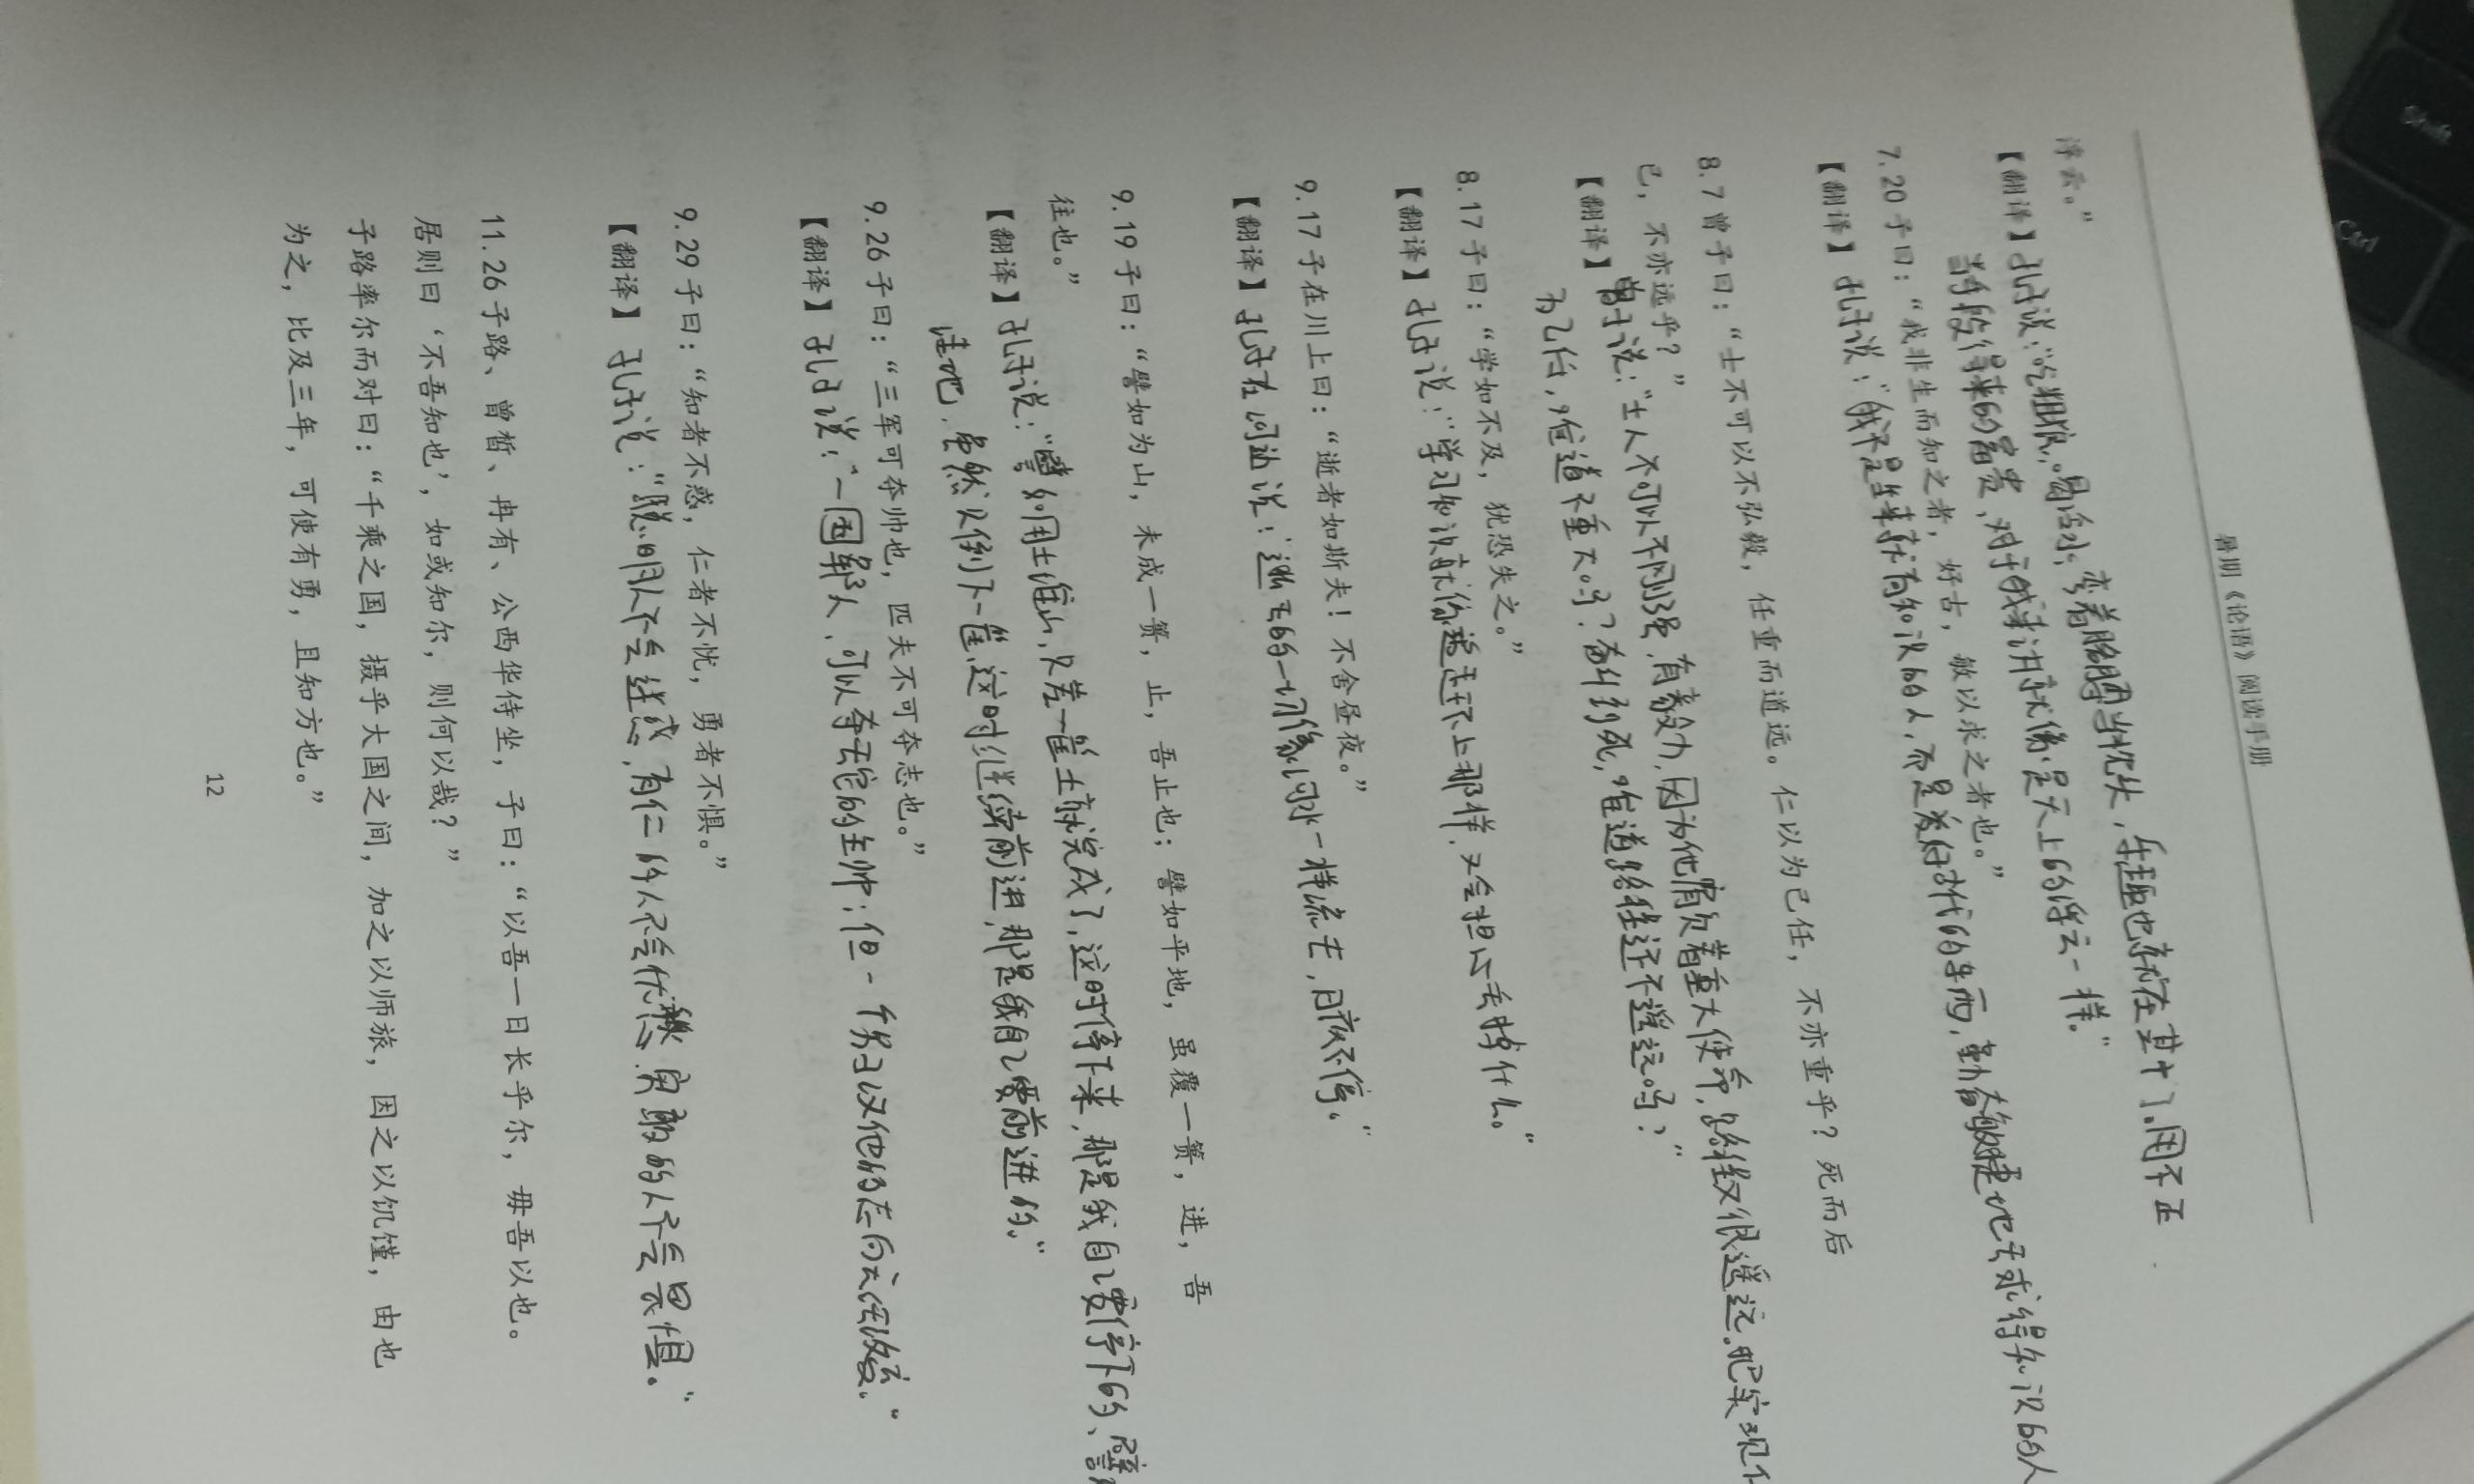 暑期《论语》阅读手册
浮云。”
【翻译】孔子说：“吃粗粮，喝冷水，弯着胳膊当枕头，乐趣也就在其中了。用不正
当手段得来的富贵，对于我来讲就像是天上的浮云一样。”
7.20 子曰：“我非生而知之者，好古，敏以求之者也。”
【翻译】孔子说：“我不是生来就有知识的人，而是爱好古代的东西，勤奋敏捷地去求得知识的人
8.7 曾子曰：“士不可以不弘毅，任重而道远。仁以为己任，不亦重乎？死而后
已，不亦远乎？”
【翻译】曾子说：“士人不可以不刚强，有毅力，因为他肩负着重大使命，路程又很遥远。把实现仁
为己任，难道不重大吗？奋斗到死，难道路程还不遥远吗？”
8.17 子曰：“学如不及，犹恐失之。”
【翻译】孔子说：“学习知识就像追赶不上那样，又会担心丢掉什么。”
9.17 子在川上曰：“逝者如斯夫！不舍昼夜。”
【翻译】孔子在河边说：“逝去的一切像河水一样流去，日夜不停。”
9.19 子曰：“譬如为山，未成一篑，止，吾止也；譬如平地，虽覆一篑，进，吾
往也。”
【翻译】孔子说：“譬如用土堆山，只差一筐土就完成了，这时停下来，那是我自己要停下的、譬
洼地，虽然只倒下一筐，这时继续前进，那是我自己要前进的。”
9.26 子曰：“三军可夺帅也，匹夫不可夺志也。”
【翻译】孔子说：“一国军人，可以夺去它的主帅；但一个男子汉他的志向无法改变。”
9.29 子曰：“知者不惑，仁者不忧，勇者不惧。”
【翻译】孔子说：“聪明人不会迷惑，有仁的人不会忧愁，勇敢的人不会畏惧。”
11.26 子路、曾皙、冉有、公西华侍坐，子曰：“以吾一日长乎尔，毋吾以也。
居则曰‘不吾知也’，如或知尔，则何以哉？”
子路率尔而对曰：“千乘之国，摄乎大国之间，加之以师旅，因之以饥馑，由也
为之，比及三年，可使有勇，且知方也。”
12
Shift
Ctrl